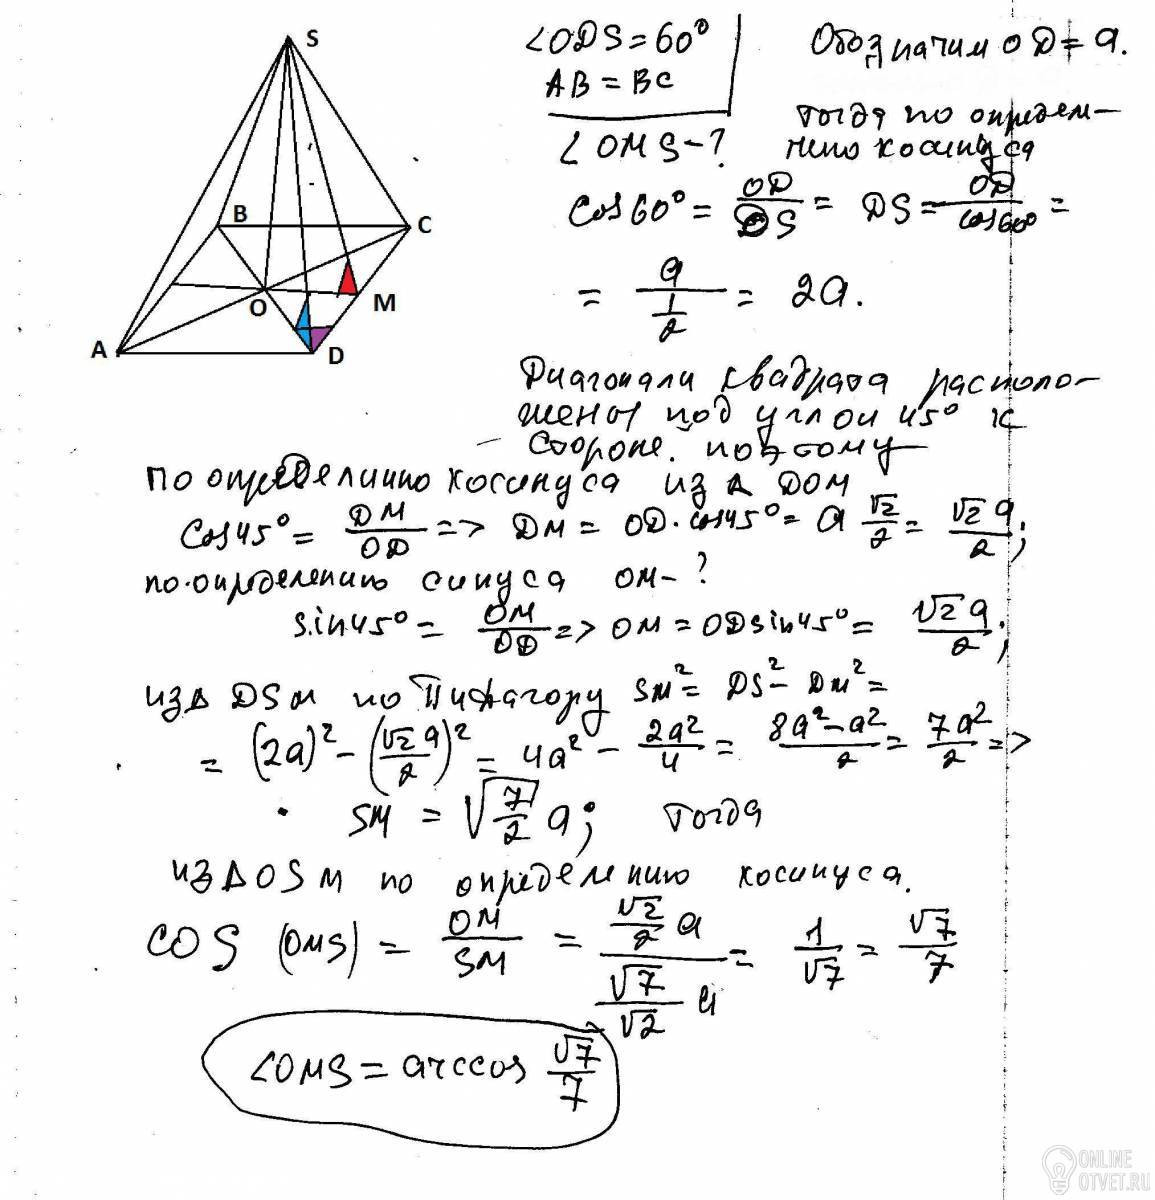 S
B
C
O
M
A
D
∠ODS=60°
AB=BC
∠OMS-?
Обозначим OD=a.
тогда по определ-
нию косинуса
cos60°= OD/DS = DS= OD/cos60° =
= a/(1/2) = 2a.
Диагонали квадрата располо-
жены под углом 45° к
стороне. поэтому
по определению косинуса из Δ DOM
cos45°= DM/OD => DM= OD·cos45°= a √2/2 = √2a/2;
по определению синуса OM-?
sin45°= OM/OD => OM=ODsin45°= √2a/2;
из Δ DSM по Пифагору SM²= DS²-DM²=
= (2a)²-(√2a/2)²= 4a²- 2a²/4 = 8a²-a²/2 = 7a²/2 =>
SM = √(7/2) a; тогда
из Δ OSM по определению косинуса.
COS (OMS) = OM/SM = (√2/2 a)/(√7/√2 a) = 1/√7 = √7/7
∠OMS= arccos √7/7
ONLINE
OTVET.RU